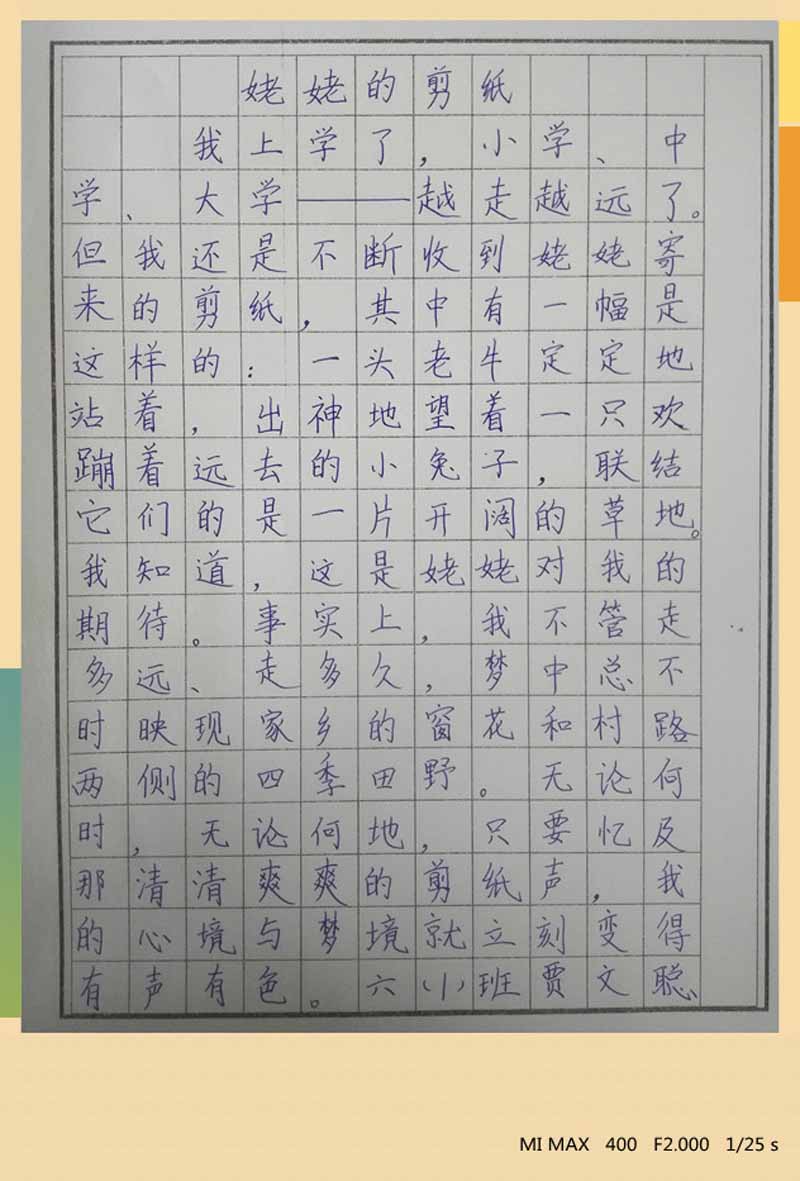 姥姥的剪纸
我上学了，小学、中
学、大学——越走越远了。
但我还是不断收到姥姥寄
来的剪纸，其中有一幅是
这样的：一头老牛定定地
站着，出神地望着一只欢
蹦着远去的小兔子，联结
它们的是一片开阔的草地。
我知道，这是姥姥对我的
期待。事实上，我不管走
多远、走多久，梦中总不
时映现家乡的窗花和村路
两侧的四季田野。无论何
时，无论何地，只要忆及
那清清爽爽的剪纸声，我
的心境与梦境就立刻变得
有声有色。六(1)班贾文聪
MI MAX 400 F2.000 1/25 s